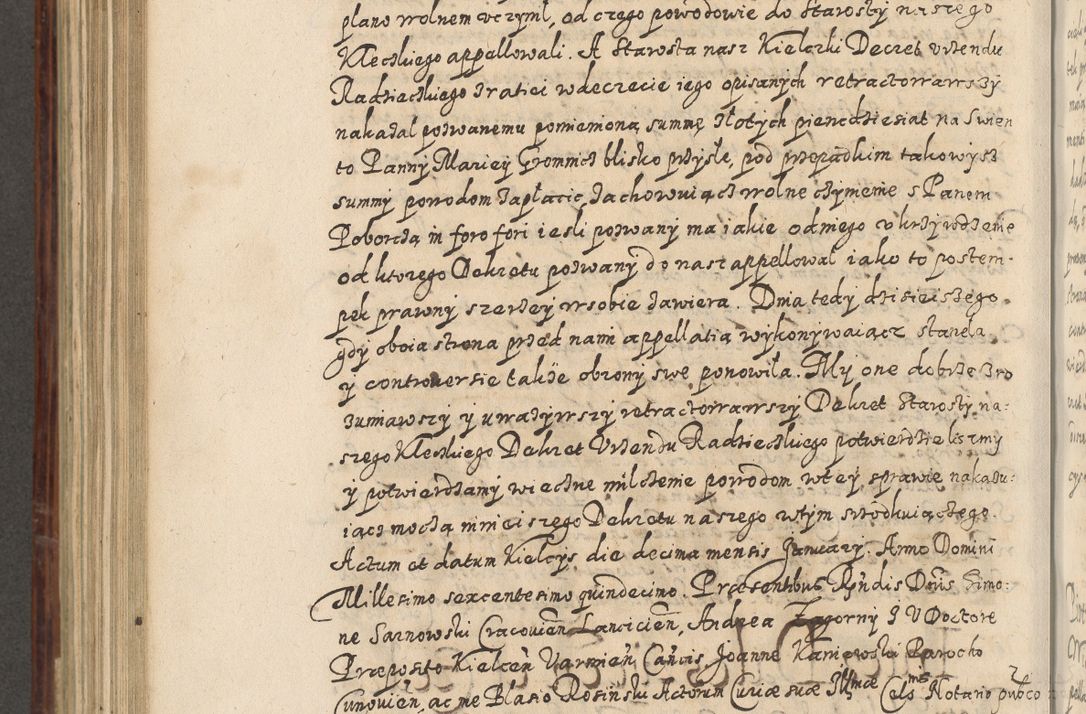 plano wolnem vczymł, od czego powodowie do Starosty naszego
Kleckiego appellowali. A Starosta nasz Kielczki Decret vrzendu
Radzieckiego zratiei wdecrecie iego opisanych retractowawszy
nakazal pozwanemu pomienioną summę złotych piendziesiat na Swien
to Panny Mariey Gromnicz blisko przyszłe, pod przepadkim takowysz
summy powodom zapłacic, zachowuiącz wolne czymenie s Panem
Poborczą in foro fori iesli pozwany ma iakie odniego vkrzywdzenie
od ktorego Dekretu pozwany do nasz appellował iako to postem-
pek prawny szerzey wsobie zawiera. Dnia tedy dzisieiszego
gdy oboia strona przed nami appellatią wykonywaiącz stanela
y controuersie także obrony swe ponowiła. My one dobrze zro
zumiawszy y uwazywszy retractowawszy Dekret Starosty na:
szego Kleckiego Dekret Vrzendu Radzieckiego potwierdzieliszmy
y potwierdzamy wieczne milczenie powodom wtey sprawie nakazu:
iącz moczą mnieiszego Dekretu naszego wtym srzodkuiączego
Actum et datum Kielcys die decima mensis Januarÿ. Anno Domini
Millesimo sexcentesimo quindecimo. Præsentibus Rñdis Dñis Simo:
ne Sarnowski Cracovień Lancicień, Andrea Zagorny I V Doctore
Præposito Kielceń Varmień Cañcis, Joanne Kaniewski Parocho
Cunovień, ac me Blasio Rosinski Actorum Curiæ suæ Illmæ Celsnis Notario pubco